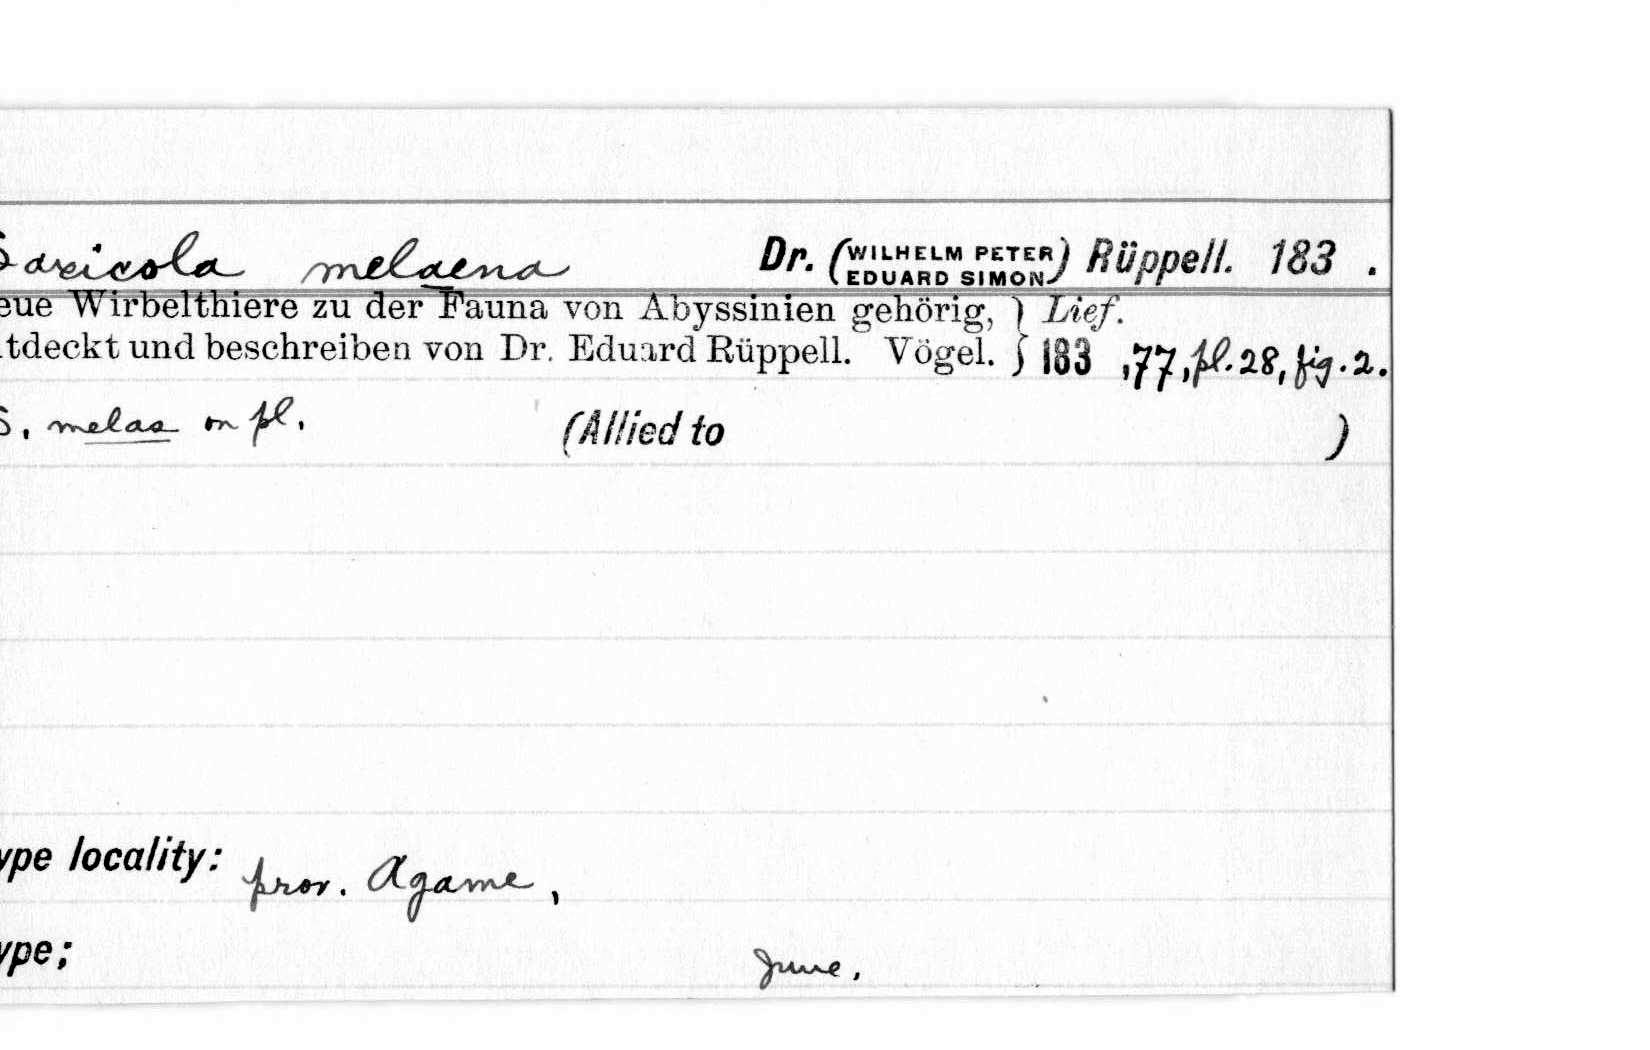 Saxicola melaena Dr. (WILHELM PETER EDUARD SIMON) Rüppell. 183 .
eue Wirbelthiere zu der Fauna von Abyssinien gehörig, } Lief.
tdeckt und beschreiben von Dr. Eduard Rüppell. Vögel. } 183 ,77, pl. 28, fig. 2.
S. melas on pl. (Allied to )
ype locality: prov. Agame,
ype;
June.